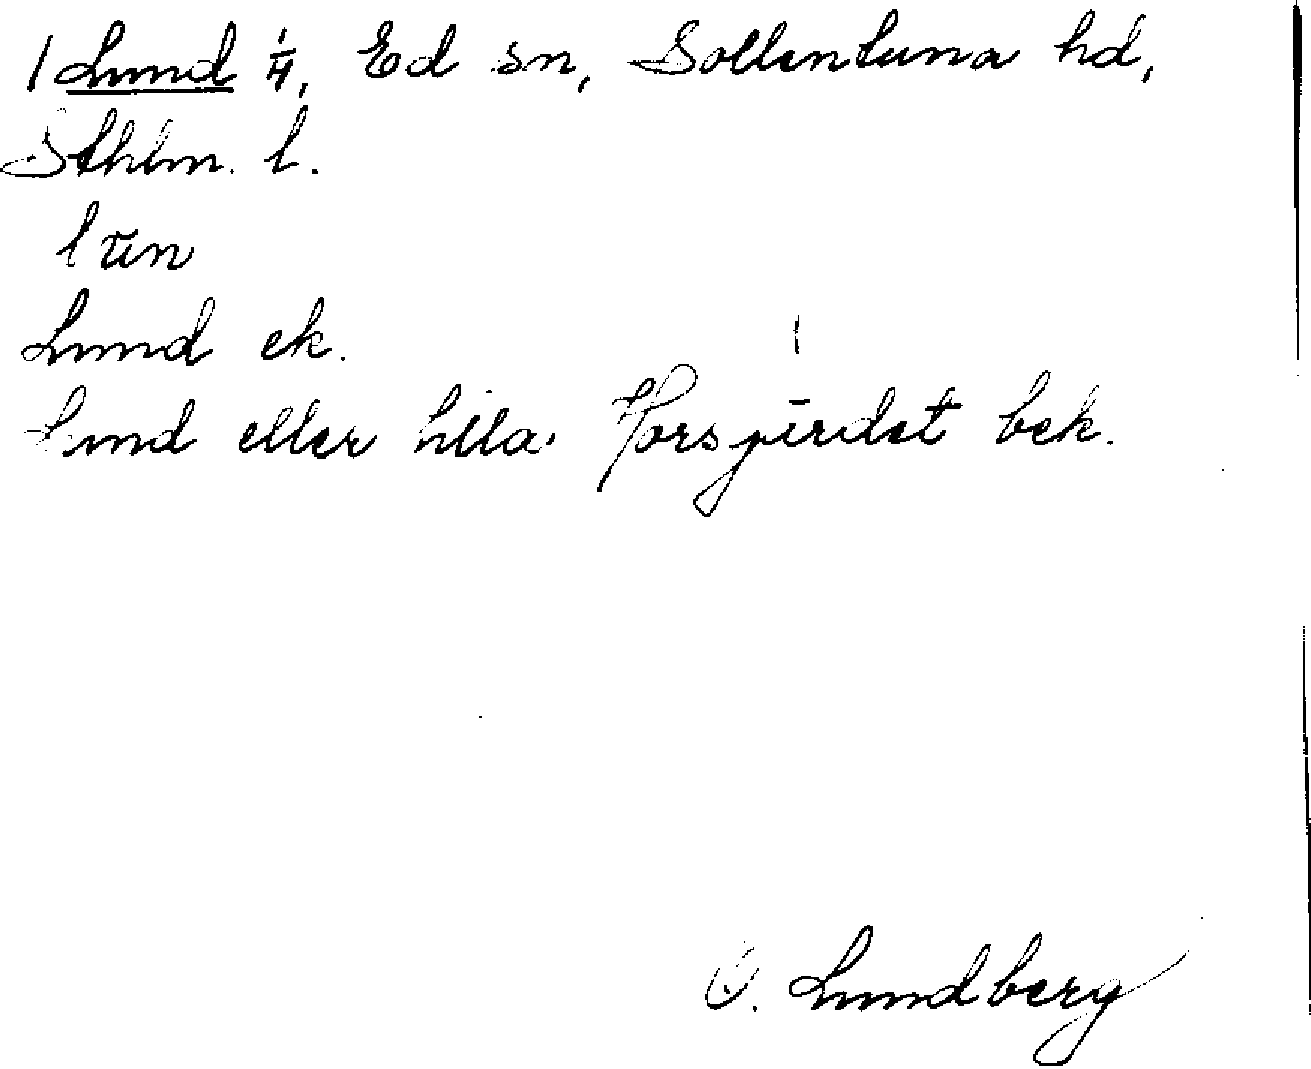 1 Lund 1/4, Ed sn, Sollentuna hd,
Sthlm. l.
lun
Lund ek.
Lund eller Lilla Torsgärdet bek.
O. Lundberg